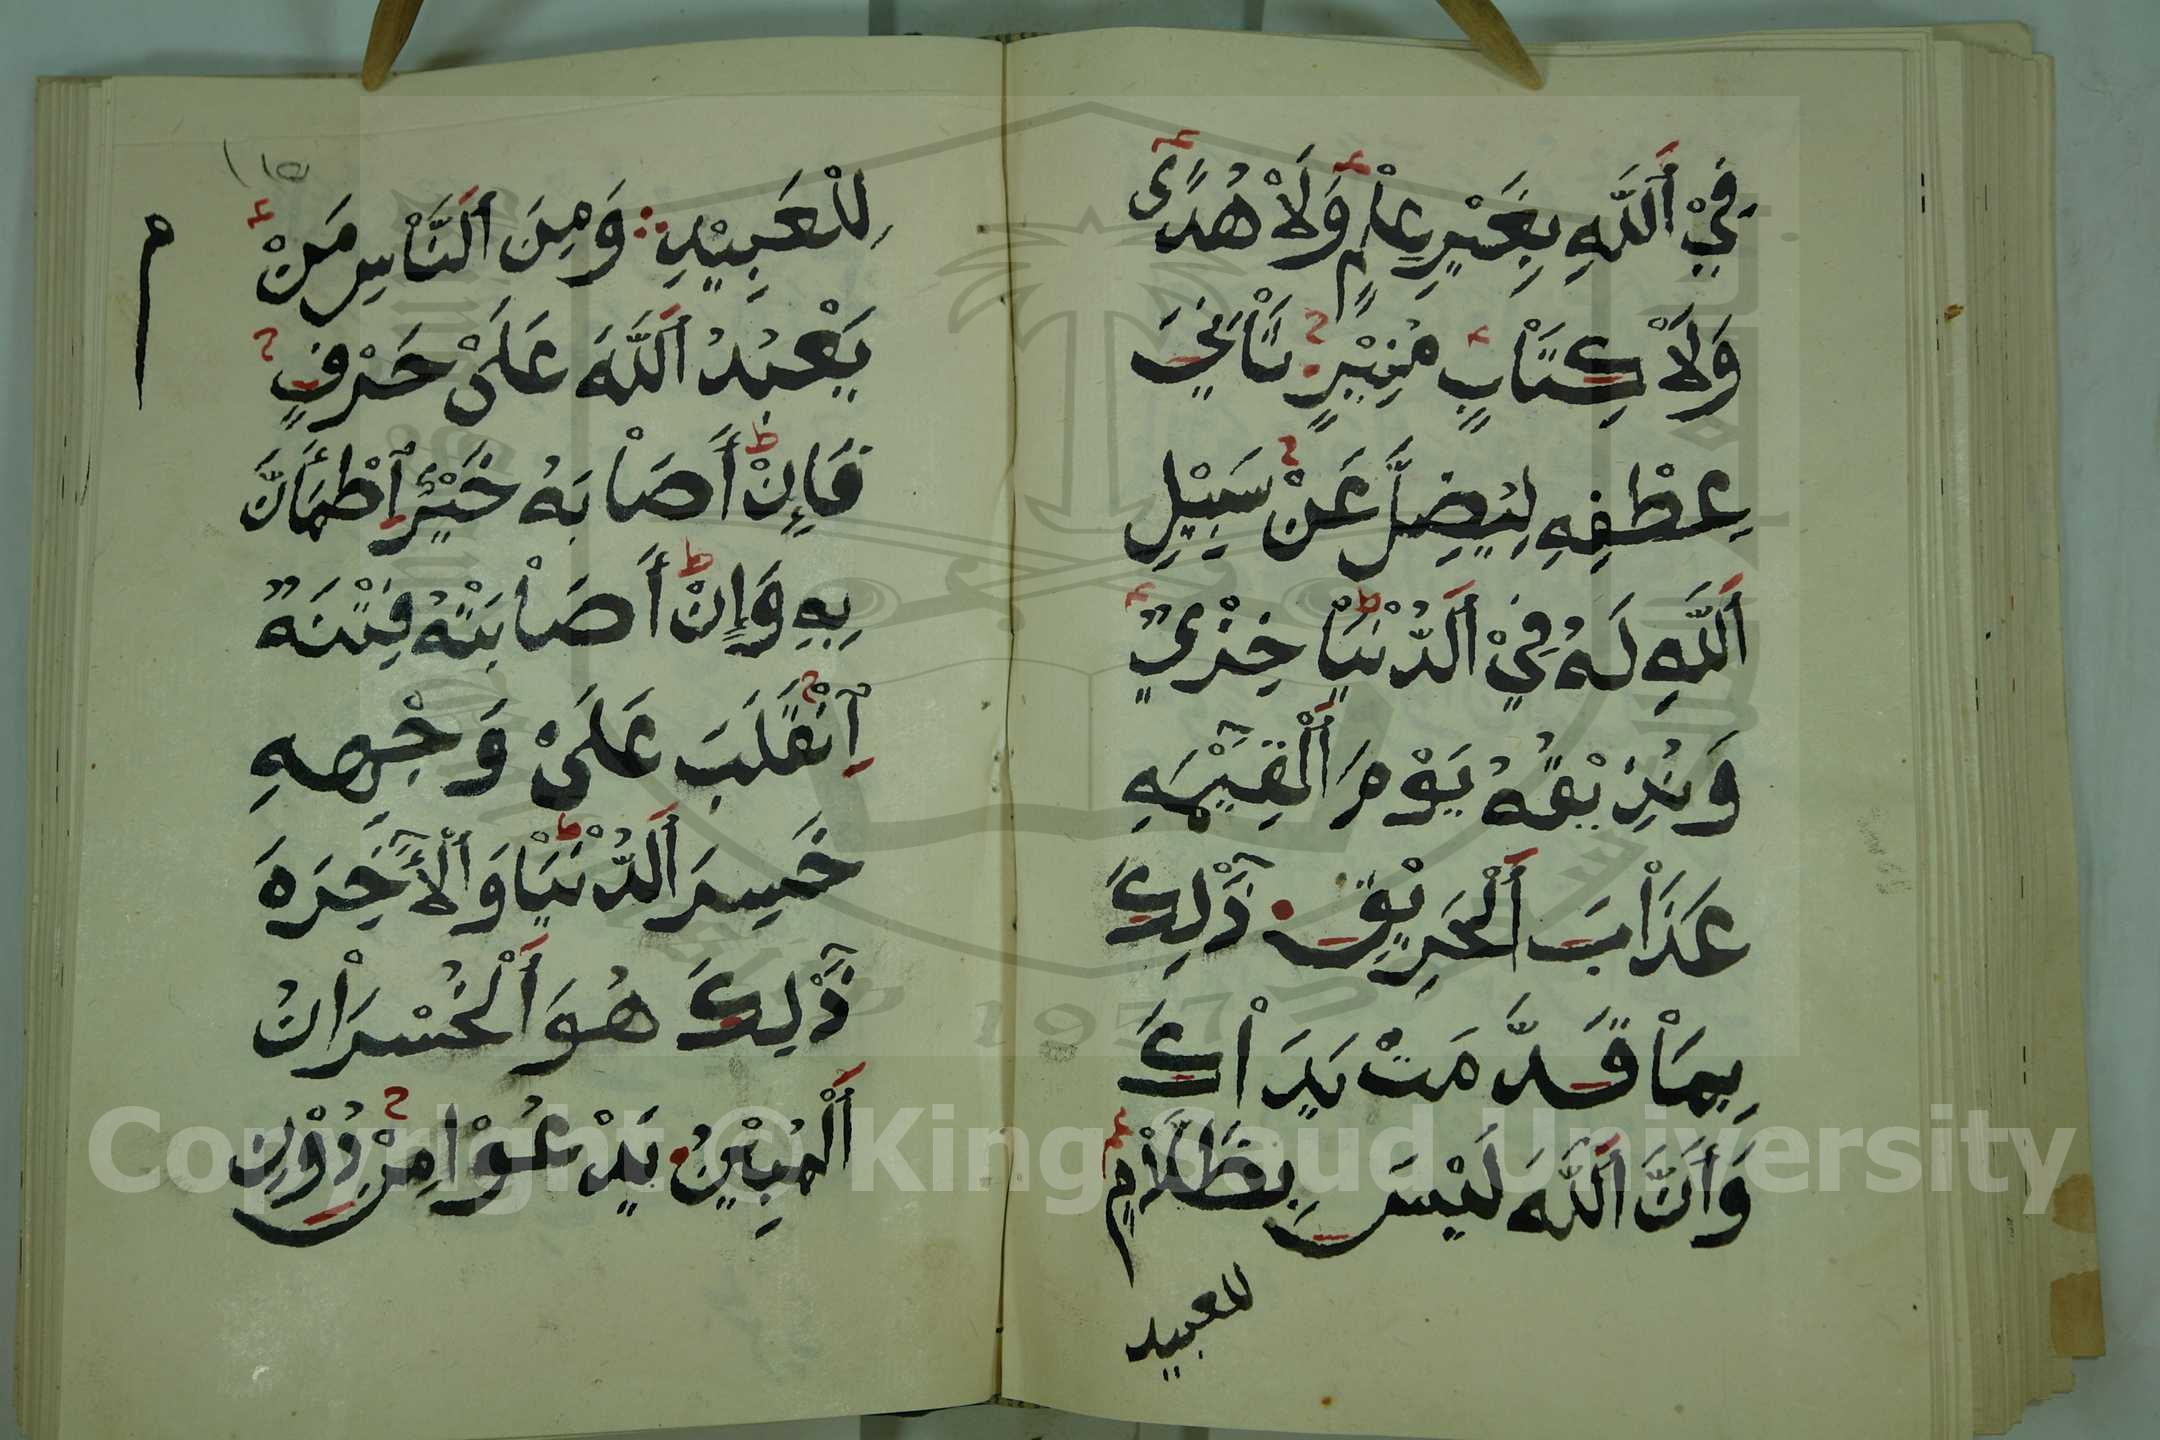 فِيْ أَللَّهِ بِغَيْرِ عِلْمٍ وَلَاْ هُدًى
وَلَاْ كِتَاْبٍ مُنِيْرٍ ثَاْنِيَ
عِطْفِهِ لِيُضِلَّ عَنْ سَبِيْلِ
أَللَّهِ لَهُ فِيْ أَلدُّنْيَاْ خِزْيٌ
وَنُذِيْقُهُ يَوْمَ أَلْقِيَٰمَهِ
عَذَاْبَ أَلْحَرِيْقِ ذَٰلِكَ
بِمَاْ قَدَّمَتْ يَدَاْكَ
وَأَنَّ أَللَّهَ لَيْسَ بِظَلَّاْمٍ
للعبيد
١١٥
لِلْعَبِيْدِ وَمِنَ أَلنَّاْسِ مَنْ
يَعْبُدُ أَللَّهَ عَلَىْ حَرْفٍ
فَإِنْ أَصَاْبَهُ خَيْرٌ اِطْمَأَنَّ
بِهِ وَإِنْ أَصَاْبَتْهُ فِتْنَهٌ
اِنْقَلَبَ عَلَىْ وَجْهِهِ
خَسِرَ أَلدُّنْيَاْ وَاْلْأَٰخِرَهَ
ذَٰلِكَ هُوَ أَلْخُسْرَاْنُ
أَلْمُبِيْنُ يَدْعُوْا مِنْ دُوْنِ
م
Copyright © King Saud University
1957